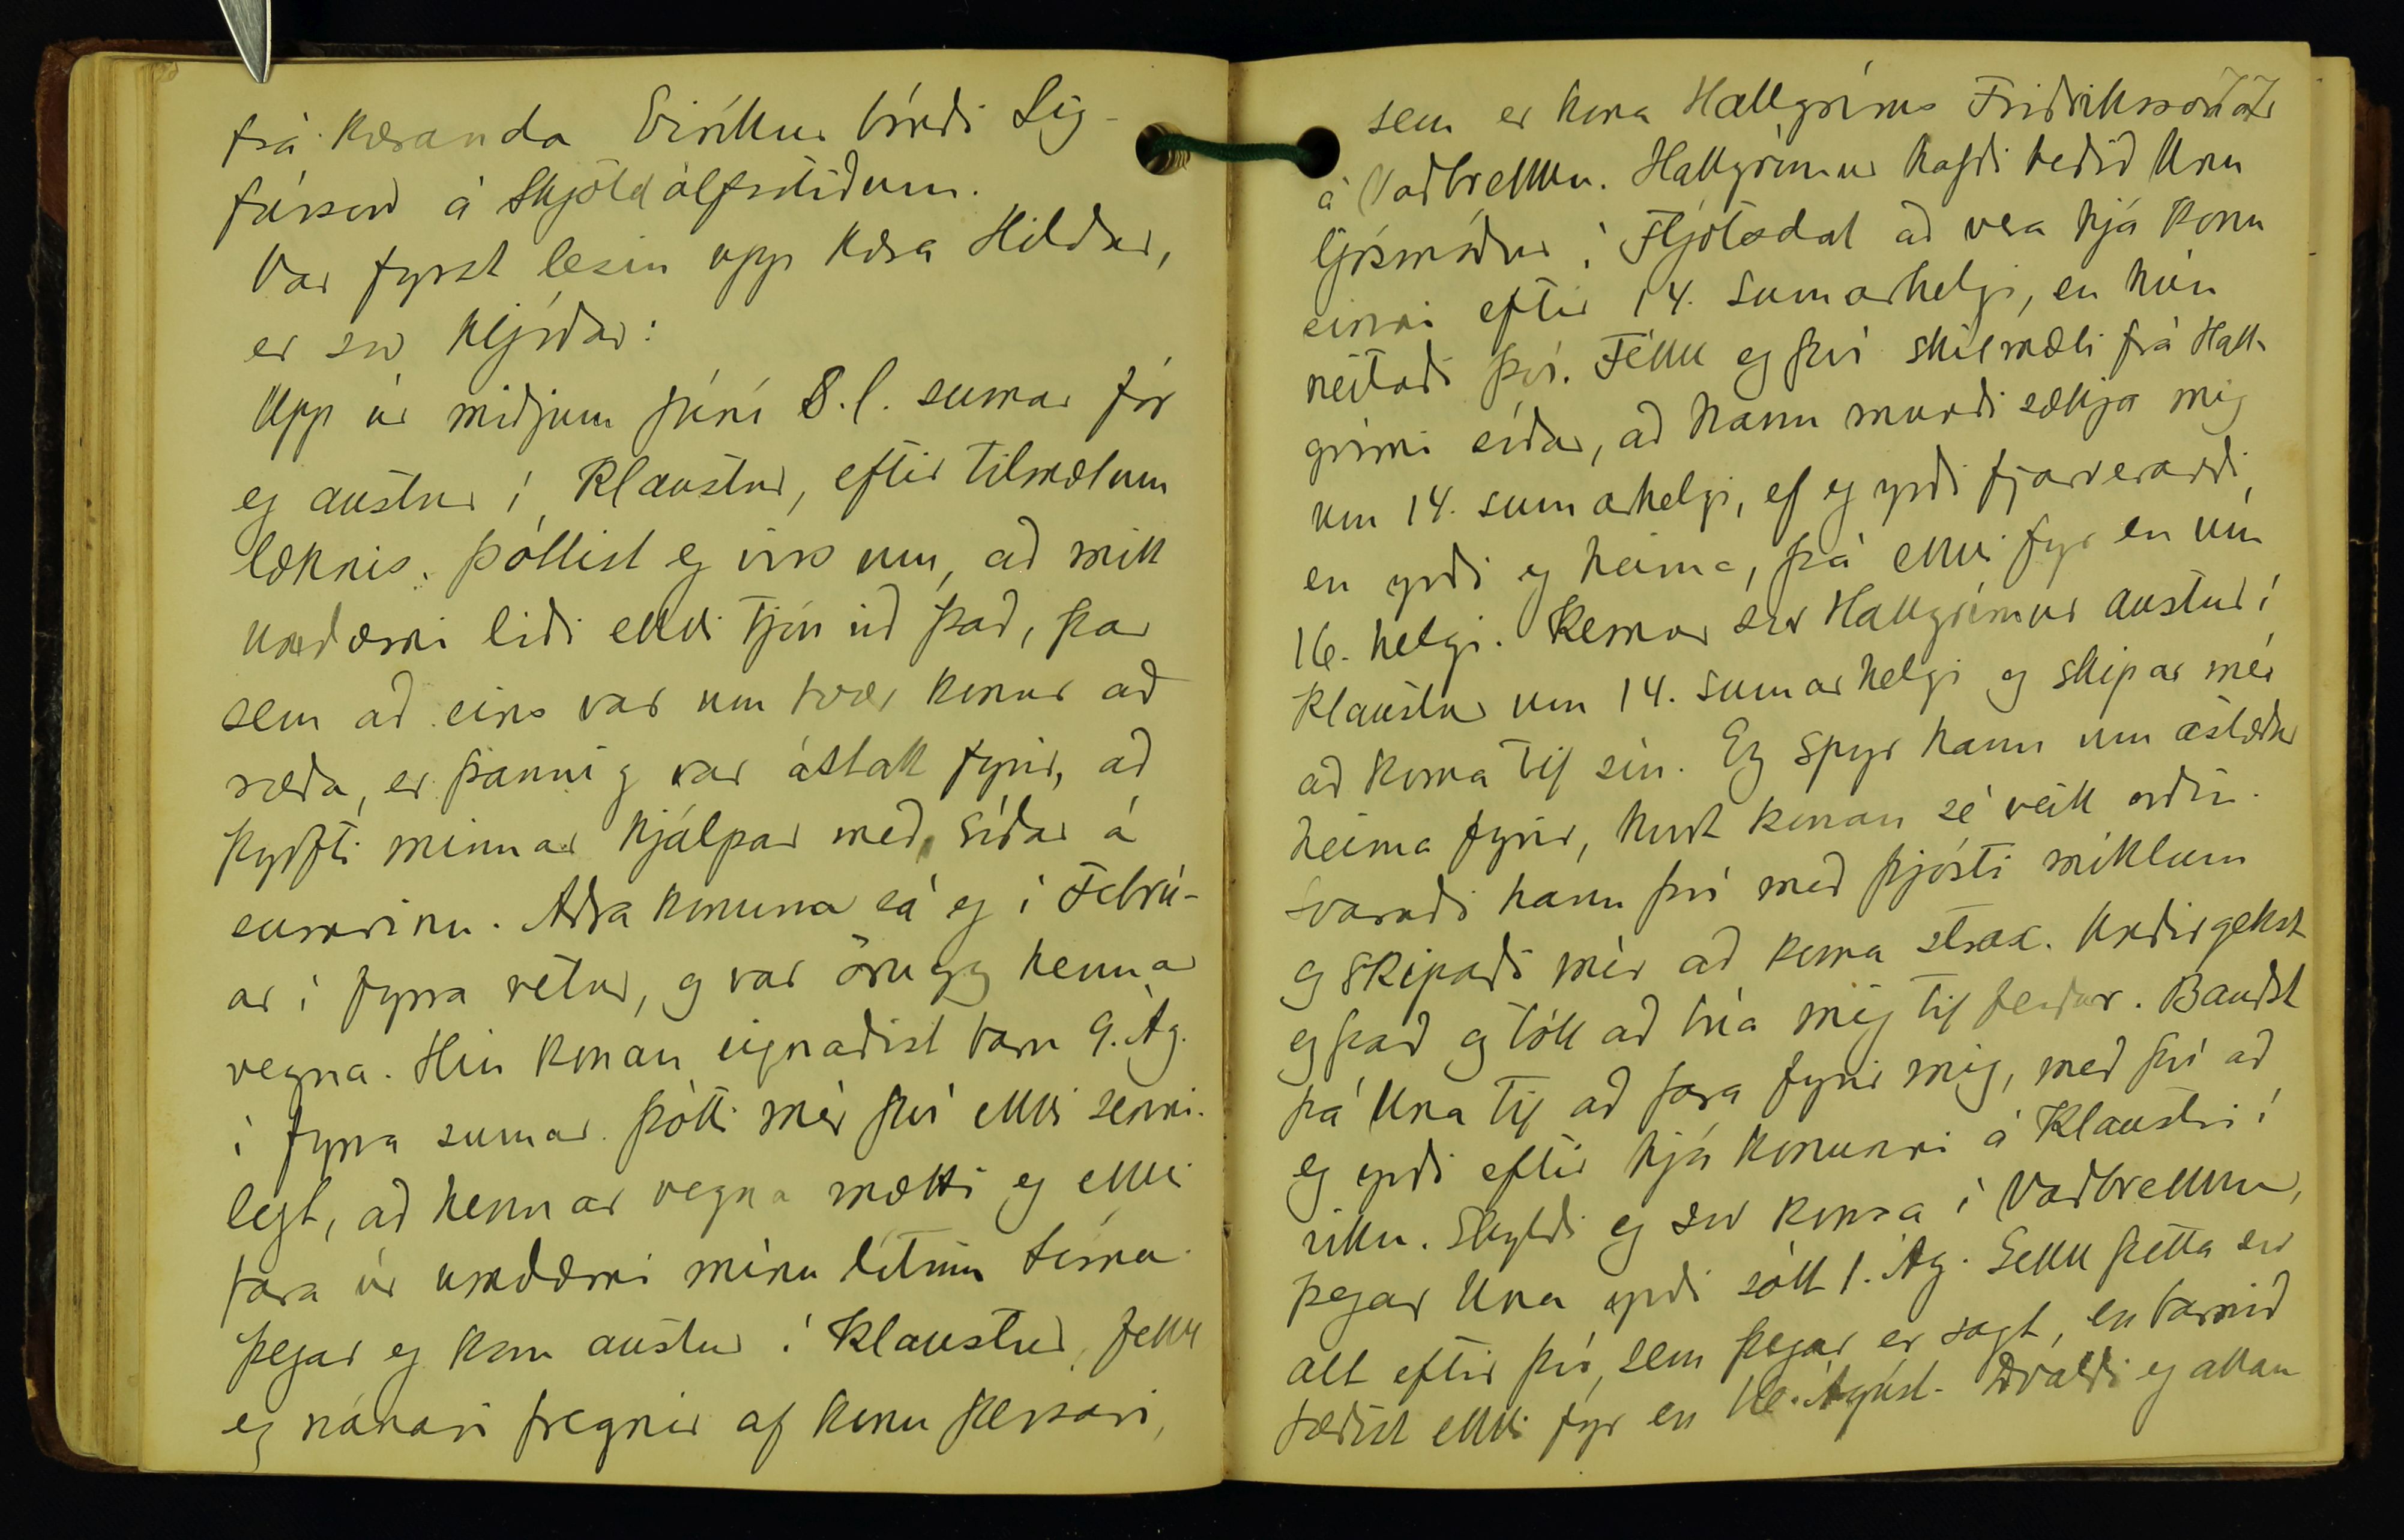 frá kæranda Eiríkur bóndi Sig-
fússon á Skjöldólfsstöðum.
Var fyrst lesin upp kæra Hildar,
er svo hljóðar:
Upp úr miðjum júní s.l. sumar fór
eg austur í Klaustur, eftir tilmælum
læknis. Þóttist eg viss um, að mitt
umdæmi liði ekki tjón við það, þar
sem að eins var um tvær konur að
ræða, er þannig var ástatt fyrir, að
þyrfti minnar hjálpar með, síðar á
sumrinu. Aðra konuna sá eg í Febrú-
ar í fyrra vetur, og var örugg hennar
vegna. Hin konan eignaðist barn 9. Ág.
í fyrra sumar. Þótti mér því ekki senni-
legt, að hennar vegna mætti eg ekki
fara úr umdæmi mínu lítinn tíma.
Þegar eg kom austur í Klaustur, fekk
eg nánari fregnir af konu þessari,
77
sem er kona Hallgríms Friðrikssonar
á Vaðbrekku. Hallgrímur hafði beðið Unu
ljósmóður í Fljótsdal að vera hjá konu
sinni eftir 14. sumarhelgi, en hún
neitaði því. Fékk eg því skilmæli frá Hall-
grími síðar, að hann mundi sækja mig
um 14. sumarhelgi, ef eg yrði fjarverandi,
en yrði eg heima, þá ekki fyr en um
16. helgi. Kemur svo Hallgrímur austur í
Klaustur um 14. sumarhelgi og skipar mér
að koma til sín. Eg spyr hann um ástæður
heima fyrir, hvort konan sé veik orðin.
Svaraði hann því með þjósti miklum
og skipaði mér að koma strax. Undirgekst
eg það og tók að búa mig til ferðar. Bauðst
þá Una til að fara fyrir mig, með því að
eg yrði eftir hjá konunni á Klaustri í
viku. Skyldi eg svo koma í Vaðbrekku,
þegar Una yrði sótt 1. Ág. Gekk þetta svo
alt eftir því, sem þegar er sagt, en barnið
fæðist ekki fyr en 16. Ágúst. Dvaldi eg allan